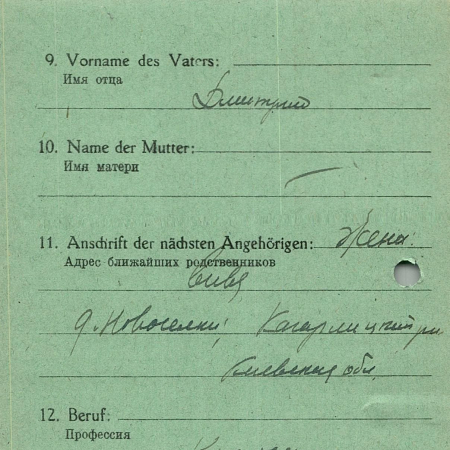 9. Vorname des Vaters:
Имя отца
Дмитрий
10. Name der Mutter:
Имя матери
—
11. Anschrift der nächsten Angehörigen: Жена:
Адрес ближайших родственников
д. Новоселки, Кагарлицкий р-н
Киевская обл.
12. Beruf:
Профессия